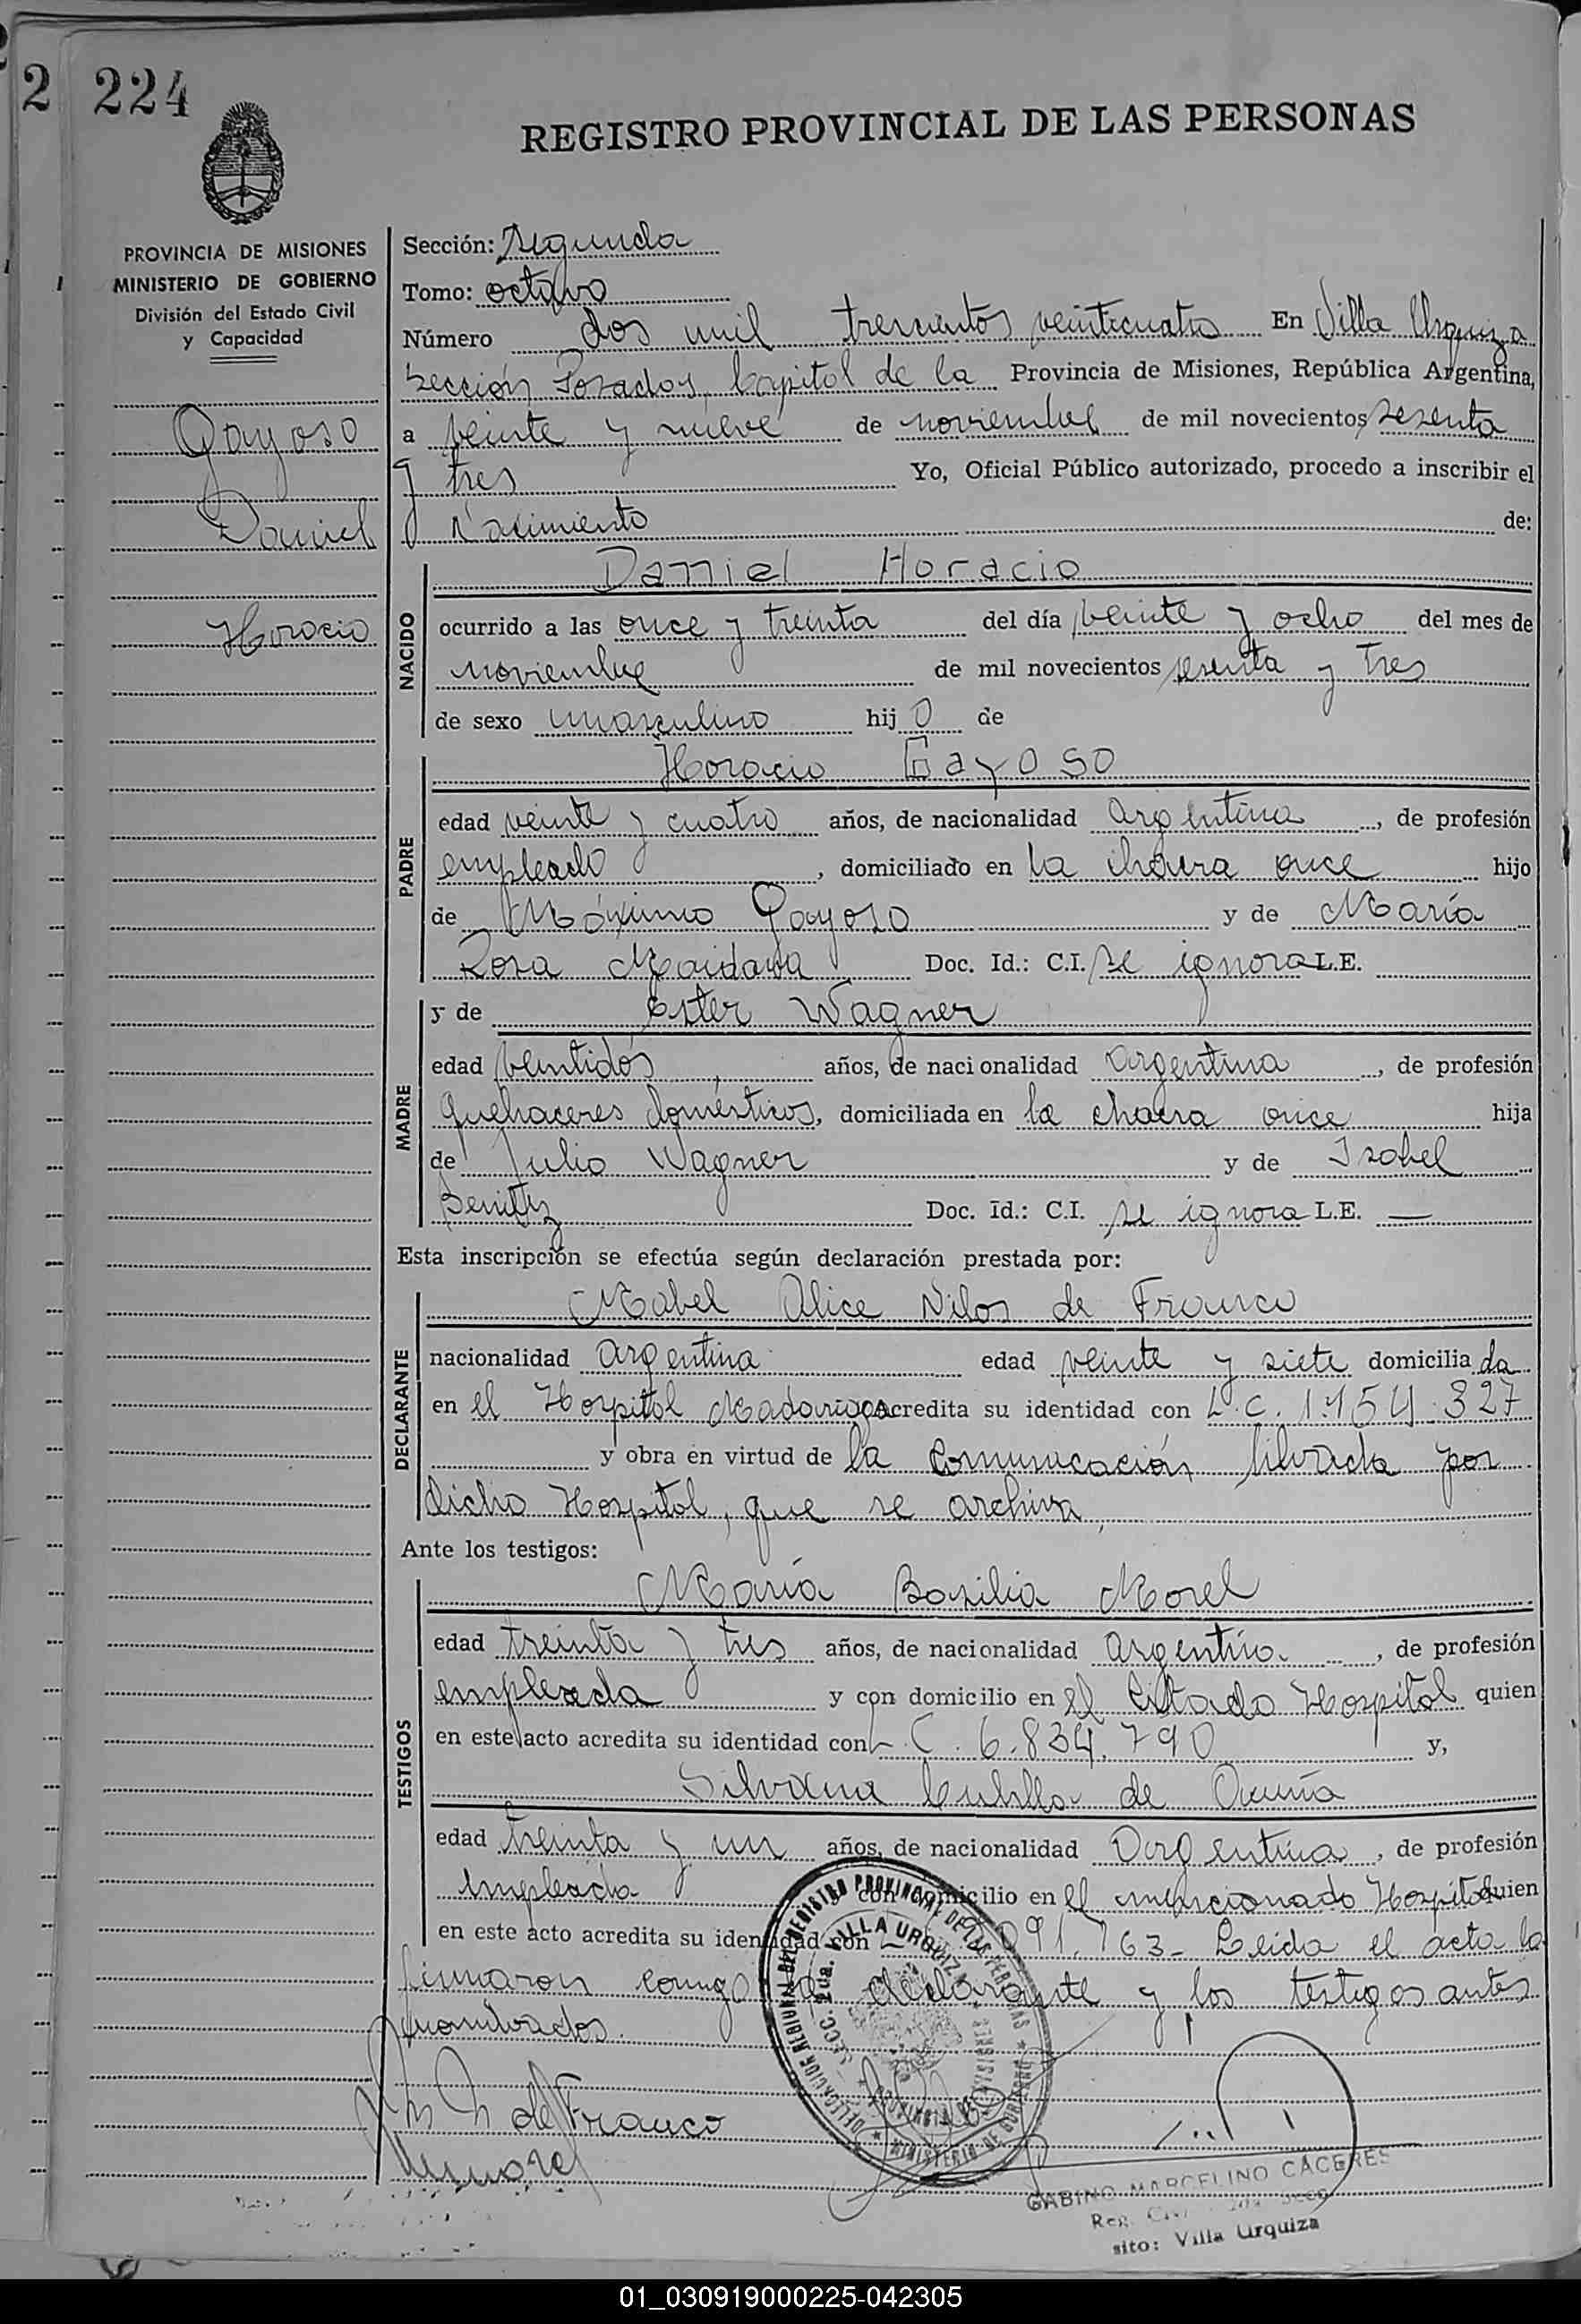 2 224
REGISTRO PROVINCIAL DE LAS PERSONAS
PROVINCIA DE MISIONES
MINISTERIO DE GOBIERNO
División del Estado Civil
y Capacidad
Gayoso
Daniel
Horacio
Sección: Segunda
Tomo: octavo
Número dos mil trescientos veinticuatro En Villa Urquiza
Sección Posadas, Capital de la Provincia de Misiones, República Argentina,
a veinte y nueve de noviembre de mil novecientos sesenta
y tres Yo, Oficial Público autorizado, procedo a inscribir el
Nacimiento de:
NACIDO
Daniel Horacio
ocurrido a las once y treinta del día veinte y ocho del mes de
noviembre de mil novecientos sesenta y tres
de sexo masculino hijo de
PADRE
Horacio Gayoso
edad veinte y cuatro años, de nacionalidad argentina, de profesión
empleado, domiciliado en la chacra once hijo
de Máximo Gayoso y de María
Rosa Maidana Doc. Id.: C.I. se ignora L.E.
MADRE
y de Ester Wagner
edad veintidós años, de nacionalidad argentina, de profesión
quehaceres domésticos, domiciliada en la chacra once hija
de Julio Wagner y de Isabel
Benitez Doc. Id.: C.I. se ignora L.E. —
Esta inscripción se efectúa según declaración prestada por:
DECLARANTE
Mabel Alice de Franco
nacionalidad argentina edad veinte y siete domiciliada
en el Hospital Madariaga acredita su identidad con L.C. 1.154.327
y obra en virtud de la comunicación librada por
dicho Hospital, que se archiva,
Ante los testigos:
TESTIGOS
María Basilia Morel
edad treinta y tres años, de nacionalidad argentina, de profesión
empleada y con domicilio en el citado Hospital quien
en este acto acredita su identidad con L.C. 6.834.790 y,
Silvana de Acuña
edad treinta y un años, de nacionalidad Argentina, de profesión
empleada y con domicilio en el mencionado Hospital quien
en este acto acredita su identidad con 091.763- Leida el acta la
firmaron conmigo declarante y los testigos antes
nombrados.
de Franco
DELEGACION REGIONAL DEL REGISTRO PROVINCIAL DE LAS PERSONAS
MINISTERIO DE GOBIERNO
SECC. 2da. VILLA URQUIZA
PROVINCIA DE MISIONES
GABINO MARCELINO CACERES
sito: Villa Urquiza
01_030919000225-042305